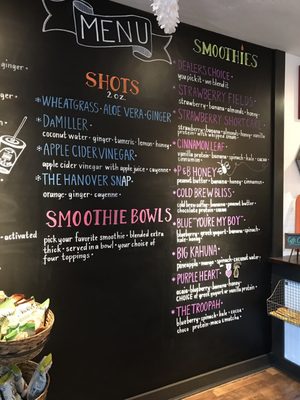 MENU
ginger
-activated
SHOTS
2 oz.
*WHEATGRASS · ALOE VERA · GINGER
*DaMILLER
coconut water - ginger - tumeric - lemon - honey
*APPLE CIDER VINEGAR
apple cider vinegar with apple juice - cayenne
*THE HANOVER SNAP
orange - ginger - cayenne
SMOOTHIE BOWLS
pick your favorite smoothie - blended extra
thick - served in a bowl - your choice of
four toppings
SMOOTHIES
DEALERS CHOICE
you pick it - we blend it
STRAWBERRY FIELDS
strawberry - banana - almond - honey
STRAWBERRY SHORTCAKE
protein
CINNAMON LEAF
vanilla protein - banana - spinach - kale - cacao
cinnamon
PB & HONEY
peanut butter - banana - honey - cinnamon
COLD BREW BLISS
cold coffee - banana - peanut butter
chocolate protein - cacao
BLUE "YOU'RE MY BOY"
kale - honey
BIG KAHUNA
pineapple - mango - spinach - coconut water
PURPLE HEART
acai - blueberry - banana - honey
choice of greek yogurt or vanilla protein
THE TROOPAH
blueberry - spinach - kale - cacao
choco protein - maca - matcha